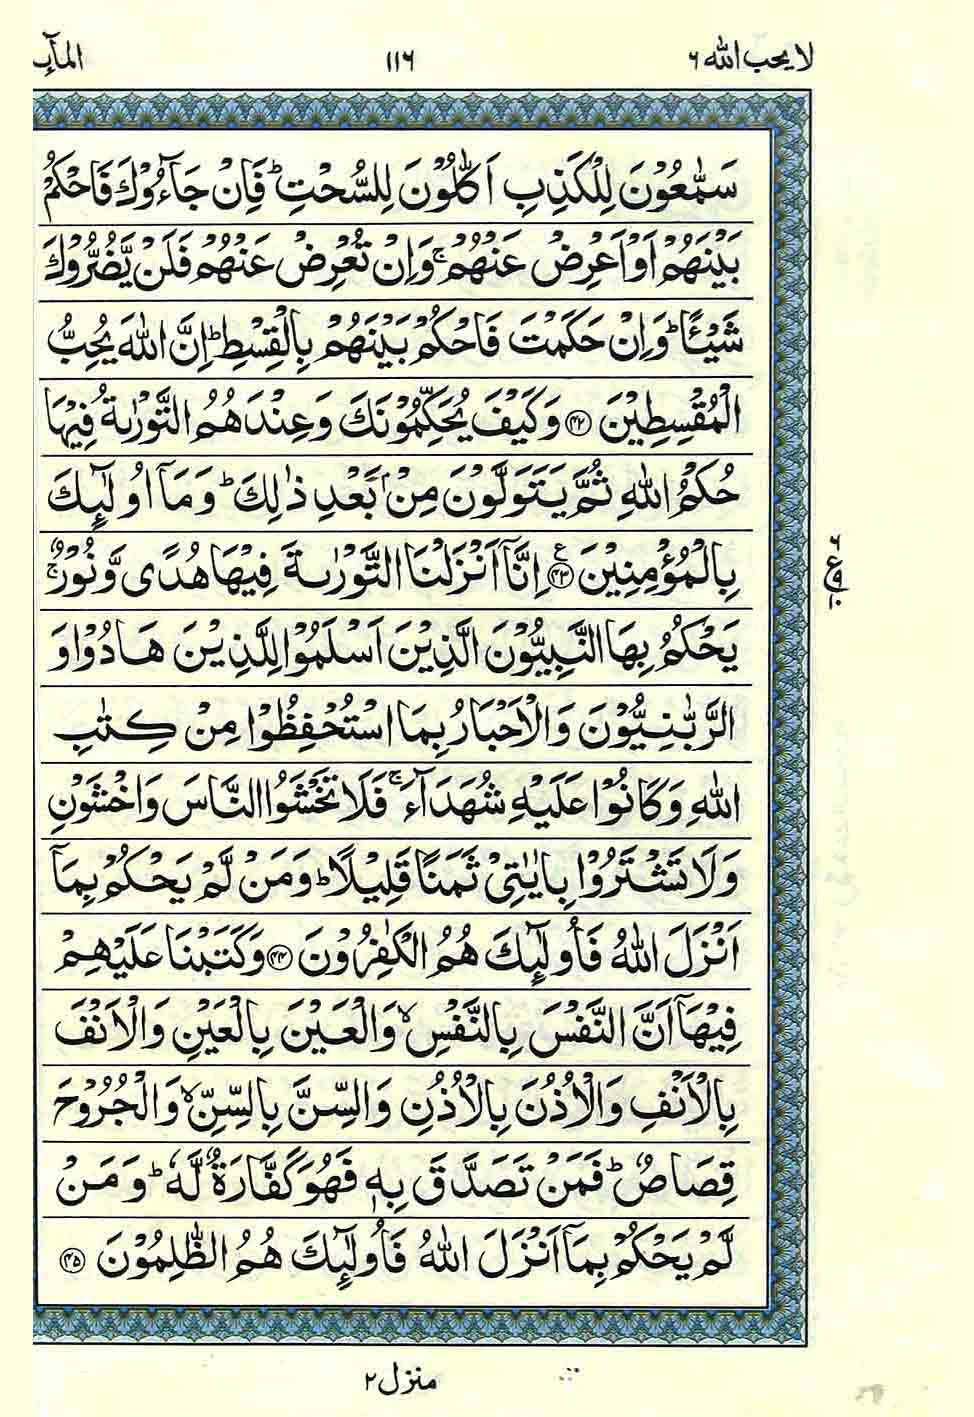 لا یحب اللہ ۶ ۱۱۶ المآىِٕ
سَمّٰعُوْنَ لِلْكَذِبِ اَكّٰلُوْنَ لِلسُّحْتِ ؕ فَاِنْ جَآءُوْكَ فَاحْكُمْ
بَیْنَهُمْ اَوْ اَعْرِضْ عَنْهُمْ ۚ وَاِنْ تُعْرِضْ عَنْهُمْ فَلَنْ یَّضُرُّوْكَ
شَیْـًٔا ؕ وَاِنْ حَكَمْتَ فَاحْكُمْ بَیْنَهُمْ بِالْقِسْطِ ؕ اِنَّ اللّٰهَ یُحِبُّ
الْمُقْسِطِیْنَ ﴿۴۲﴾ وَكَیْفَ یُحَكِّمُوْنَكَ وَعِنْدَهُمُ التَّوْرٰىةُ فِیْهَا
حُكْمُ اللّٰهِ ثُمَّ یَتَوَلَّوْنَ مِنْۢ بَعْدِ ذٰلِكَ ؕ وَمَاۤ اُولٰٓىِٕكَ
بِالْمُؤْمِنِیْنَ ﴿۴۳﴾ ع اِنَّاۤ اَنْزَلْنَا التَّوْرٰىةَ فِیْهَا هُدًی وَّنُوْرٌ ۚ
۶ ع ۹ ۱۰
یَحْكُمُ بِهَا النَّبِیُّوْنَ الَّذِیْنَ اَسْلَمُوْا لِلَّذِیْنَ هَادُوْا وَ
الرَّبّٰنِیُّوْنَ وَالْاَحْبَارُ بِمَا اسْتُحْفِظُوْا مِنْ كِتٰبِ
اللّٰهِ وَكَانُوْا عَلَیْهِ شُهَدَآءَ ۚ فَلَا تَخْشَوُا النَّاسَ وَاخْشَوْنِ
وَلَا تَشْتَرُوْا بِاٰیٰتِیْ ثَمَنًا قَلِیْلًا ؕ وَمَنْ لَّمْ یَحْكُمْ بِمَاۤ
اَنْزَلَ اللّٰهُ فَاُولٰٓىِٕكَ هُمُ الْكٰفِرُوْنَ ﴿۴۴﴾ وَكَتَبْنَا عَلَیْهِمْ
فِیْهَاۤ اَنَّ النَّفْسَ بِالنَّفْسِ ۙ وَالْعَیْنَ بِالْعَیْنِ وَالْاَنْفَ
بِالْاَنْفِ وَالْاُذُنَ بِالْاُذُنِ وَالسِّنَّ بِالسِّنِّ ۙ وَالْجُرُوْحَ
قِصَاصٌ ؕ فَمَنْ تَصَدَّقَ بِهٖ فَهُوَ كَفَّارَةٌ لَّهٗ ؕ وَمَنْ
لَّمْ یَحْكُمْ بِمَاۤ اَنْزَلَ اللّٰهُ فَاُولٰٓىِٕكَ هُمُ الظّٰلِمُوْنَ ﴿۴۵﴾
منزل ۲